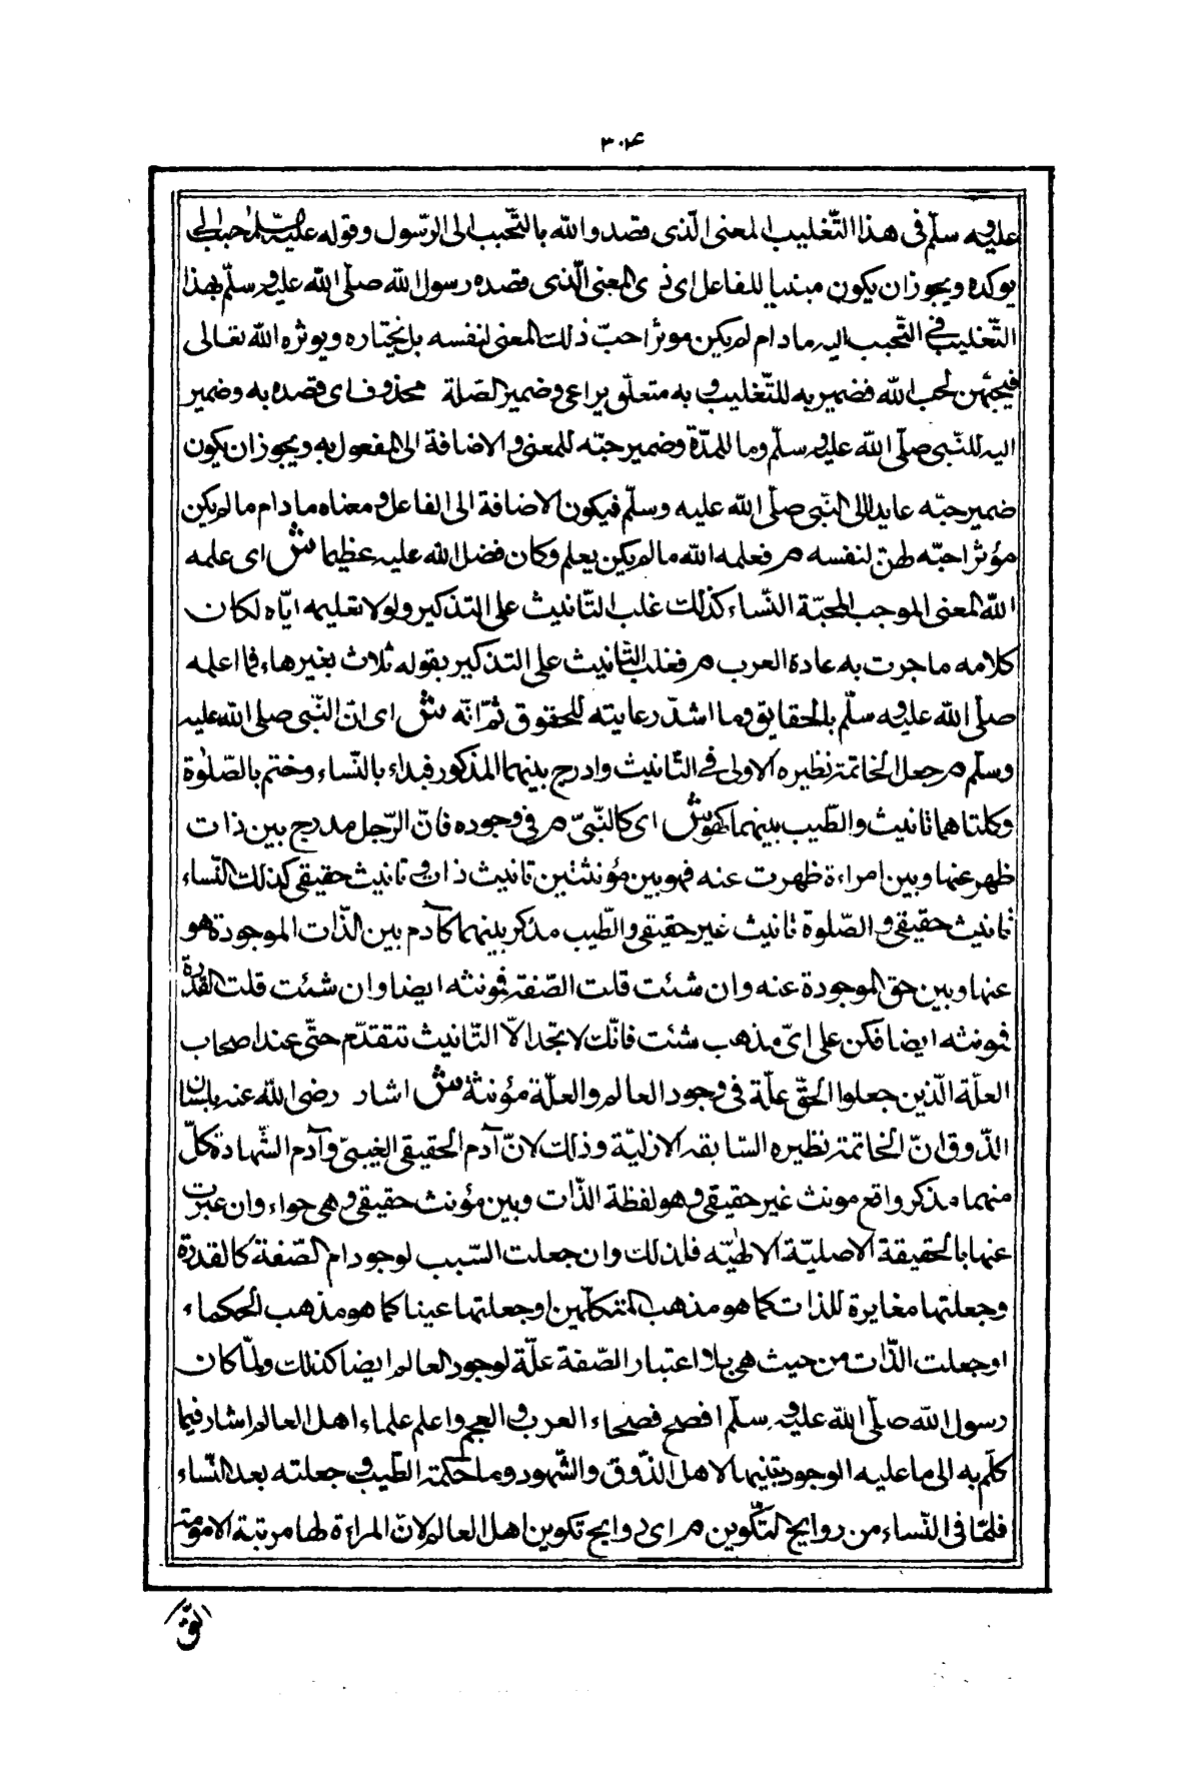 ٣٠٤
عليه وسلّم فى هذا التّغليب المعنى الّذى قصد والله بالتّحبب الى الرّسول وقوله عليه السّلم حبب الى
يوكده ويجوز ان يكون مبنيا للفاعل اى المعنى الّذى قصده رسول الله صلّى الله عليه وسلّم بهذا
التّغليب فى التّحبب اليه ما دام لم يكن موثرا حبّ ذلك المعنى لنفسه بل يختاره ويوثره الله تعالى
فيحبّهن لحب الله فضمير به للتّغليب و به متعلّق يراعى وضمير الصّلة محذوف اى قصده به وضمير
اليه للنّبى صلّى الله عليه وسلّم وما للمدّة وضمير حبّه للمعنى والاضافة الى المفعول به ويجوز ان يكون
ضمير حبّه عايدا الى النّبى صلّى الله عليه وسلّم فيكون الاضافة الى الفاعل ومعناه ما دام ما لم يكن
مؤثرا حبّه لهنّ لنفسه م فعلمه الله ما لم يكن يعلم وكان فضل الله عليه عظيما ش اى علمه
الله المعنى الموجب لمحبّة النّساء كذلك غلب التّانيث على التذكير ولولا تعليمه ايّاه لكان
كلامه ما جرت به عادة العرب م فغلب التّانيث على التذكير بقوله ثلاث بغير هاء فما اعلمه
صلّى الله عليه وسلّم بالحقايق وما اشدّ رعايته للحقوق ثمّ انّه ش اى انّ النّبى صلى الله عليه
وسلّم م جعل الخاتمة نظيره الاولى فى التّانيث وادرج بينهما المذكور فبداء بالنّساء وختم بالصّلوٰة
وكلتاهما تانيث والطّيب بينهما كهو ش اى كالنّبىّ م فى وجوده فانّ الرّجل مدرج بين ذات
ظهر عنها وبين امراءة ظهرت عنه فهو بين مؤنثتين تانيث ذات وتانيث حقيقى كذلك النّساء
تانيث حقيقى والصّلوة تانيث غير حقيقى والطّيب مذكر بينهما كآدم بين الذّات الموجودة هو
عنها وبين حوّ الموجودة عنه وان شئت قلت الصّفة فمونثه ايضا وان شئت قلت القدرة
فمونثه ايضا فكن على اىّ مذهب شئت فانّك لا تجّد الّا التّانيث تتقدّم حتّى عند اصحاب
العلّة الّذين جعلوا الحقّ علّة فى وجود العالم والعلّة مؤنثة ش اشار رضى الله عنه بلسان
الذّوق انّ الخاتمة نظيره السّابقه الازليّة وذلك لانّ آدم الحقيقى الغيبىّ وآدم الشّهادة كلّ
منهما مذكر واقع مونث غير حقيقى وهو لفظة الذّات وبين مؤنث حقيقى وهى حواء وان عبّرت
عنها بالحقيقة الاصليّة الالٰهيّه فلذلك وان جعلت السّبب لوجود ادم الصّفة كالقدرة
وجعلتها مغايرة للذات كما هو مذهب المتكلّمين او جعلتها عينا كما هو مذهب الحكماء
او جعلت الذّات من حيث هى بلا اعتبار الصّفة علّة لوجود العالم ايضا كذلك ولمّا كان
رسول الله صلّى الله عليه وسلّم افصح فصحاء العرب و العجم واعلم علماء اهل العالم اشار فيما
كلّم به الى ما عليه الوجود تنبيها لاهل الذّوق والشّهود وما حكمة الطّيب و جعلته بعد النّساء
فلمّا فى النّساء من روايح التّكوين م اى روايح تكوين اهل العالم لانّ المراءة لها مرتبة الامومة